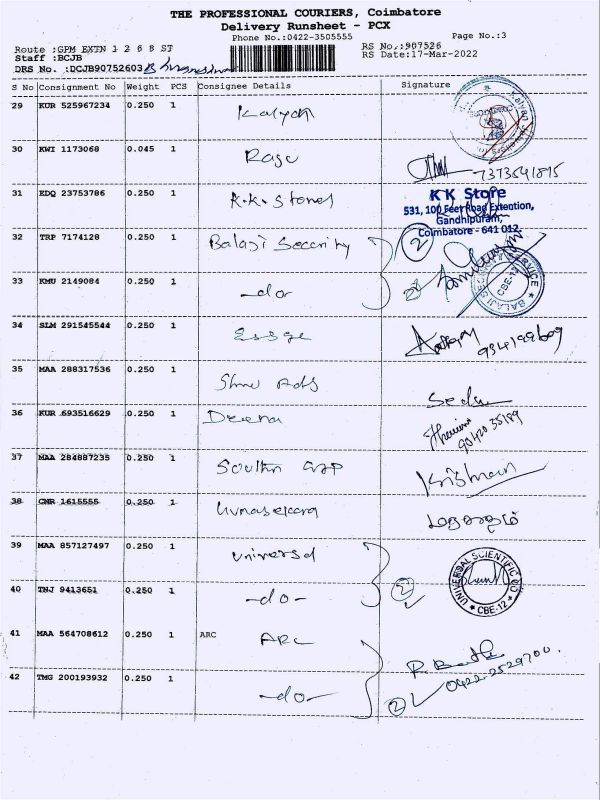 THE PROFESSIONAL COURIERS, Coimbatore
Delivery Runsheet - PCX
Phone No.:0422-3505555 Page No.:3
Route :GPM EXTN 1 2 6 8 ST RS No.:907526
Staff :BCJB RS Date:17-Mar-2022
DRS No. :DCJB90752603
S No Consignment No Weight PCS Consignee Details Signature
29 KUR 525967234 0.250 1 Kalyan
30 KWI 1173068 0.045 1 Raju
7373541895
31 EDQ 23753786 0.250 1 K.K. Stones
K K Store
531, 100 Feet Road Extention,
Gandhipuram,
Coimbatore - 641 012
32 TRP 7174128 0.250 1 Balaji Security 2
33 KMU 2149084 0.250 1 -do- 2
BALAJI SECURITY SERVICE CBE-12
34 SLM 291545544 0.250 1 Essge
35 MAA 288317536 0.250 1 Shree Ads
36 KUR 693516629 0.250 1 Deena
37 MAA 284887235 0.250 1 South
Krishnan
38 CNR 1615555 0.250 1 Gunasekara
39 MAA 857127497 0.250 1 Universal
UNIVERSAL SCIENTIFIC CO CBE-12
40 TNJ 9413651 0.250 1 -do- 2
41 MAA 564708612 0.250 1 ARC ARC
0422-2529700.
42 TMG 200193932 0.250 1 -do- 2